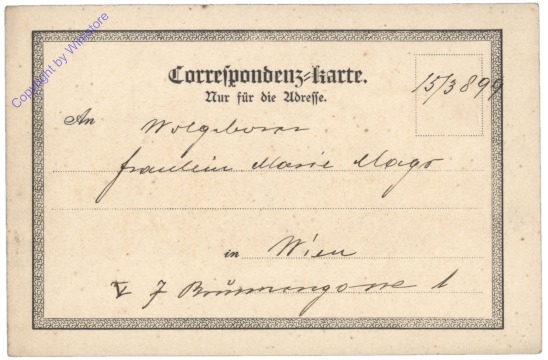 Copyright by Wimstore
Correspondenz-Karte.
Nur für die Adresse.
15/3 899
An Wolgeboren
Fraulein Marie Mago
in Wien
V 7 1